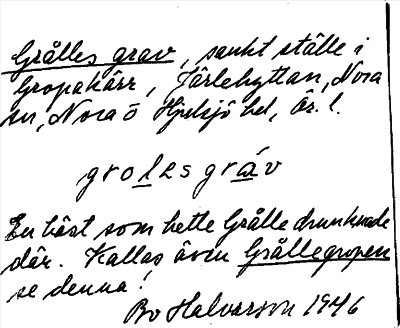 Grålles grav, sankt ställe i
Gropakärr, Järlehyttan, Nora
sn, Nora o Hjulsjö bel, Ör. l.
grolɛs grav
En häst som hette Grålle drunknade
där. Kallas även Grållegropen
se denna!
Bo Halvarson 1946